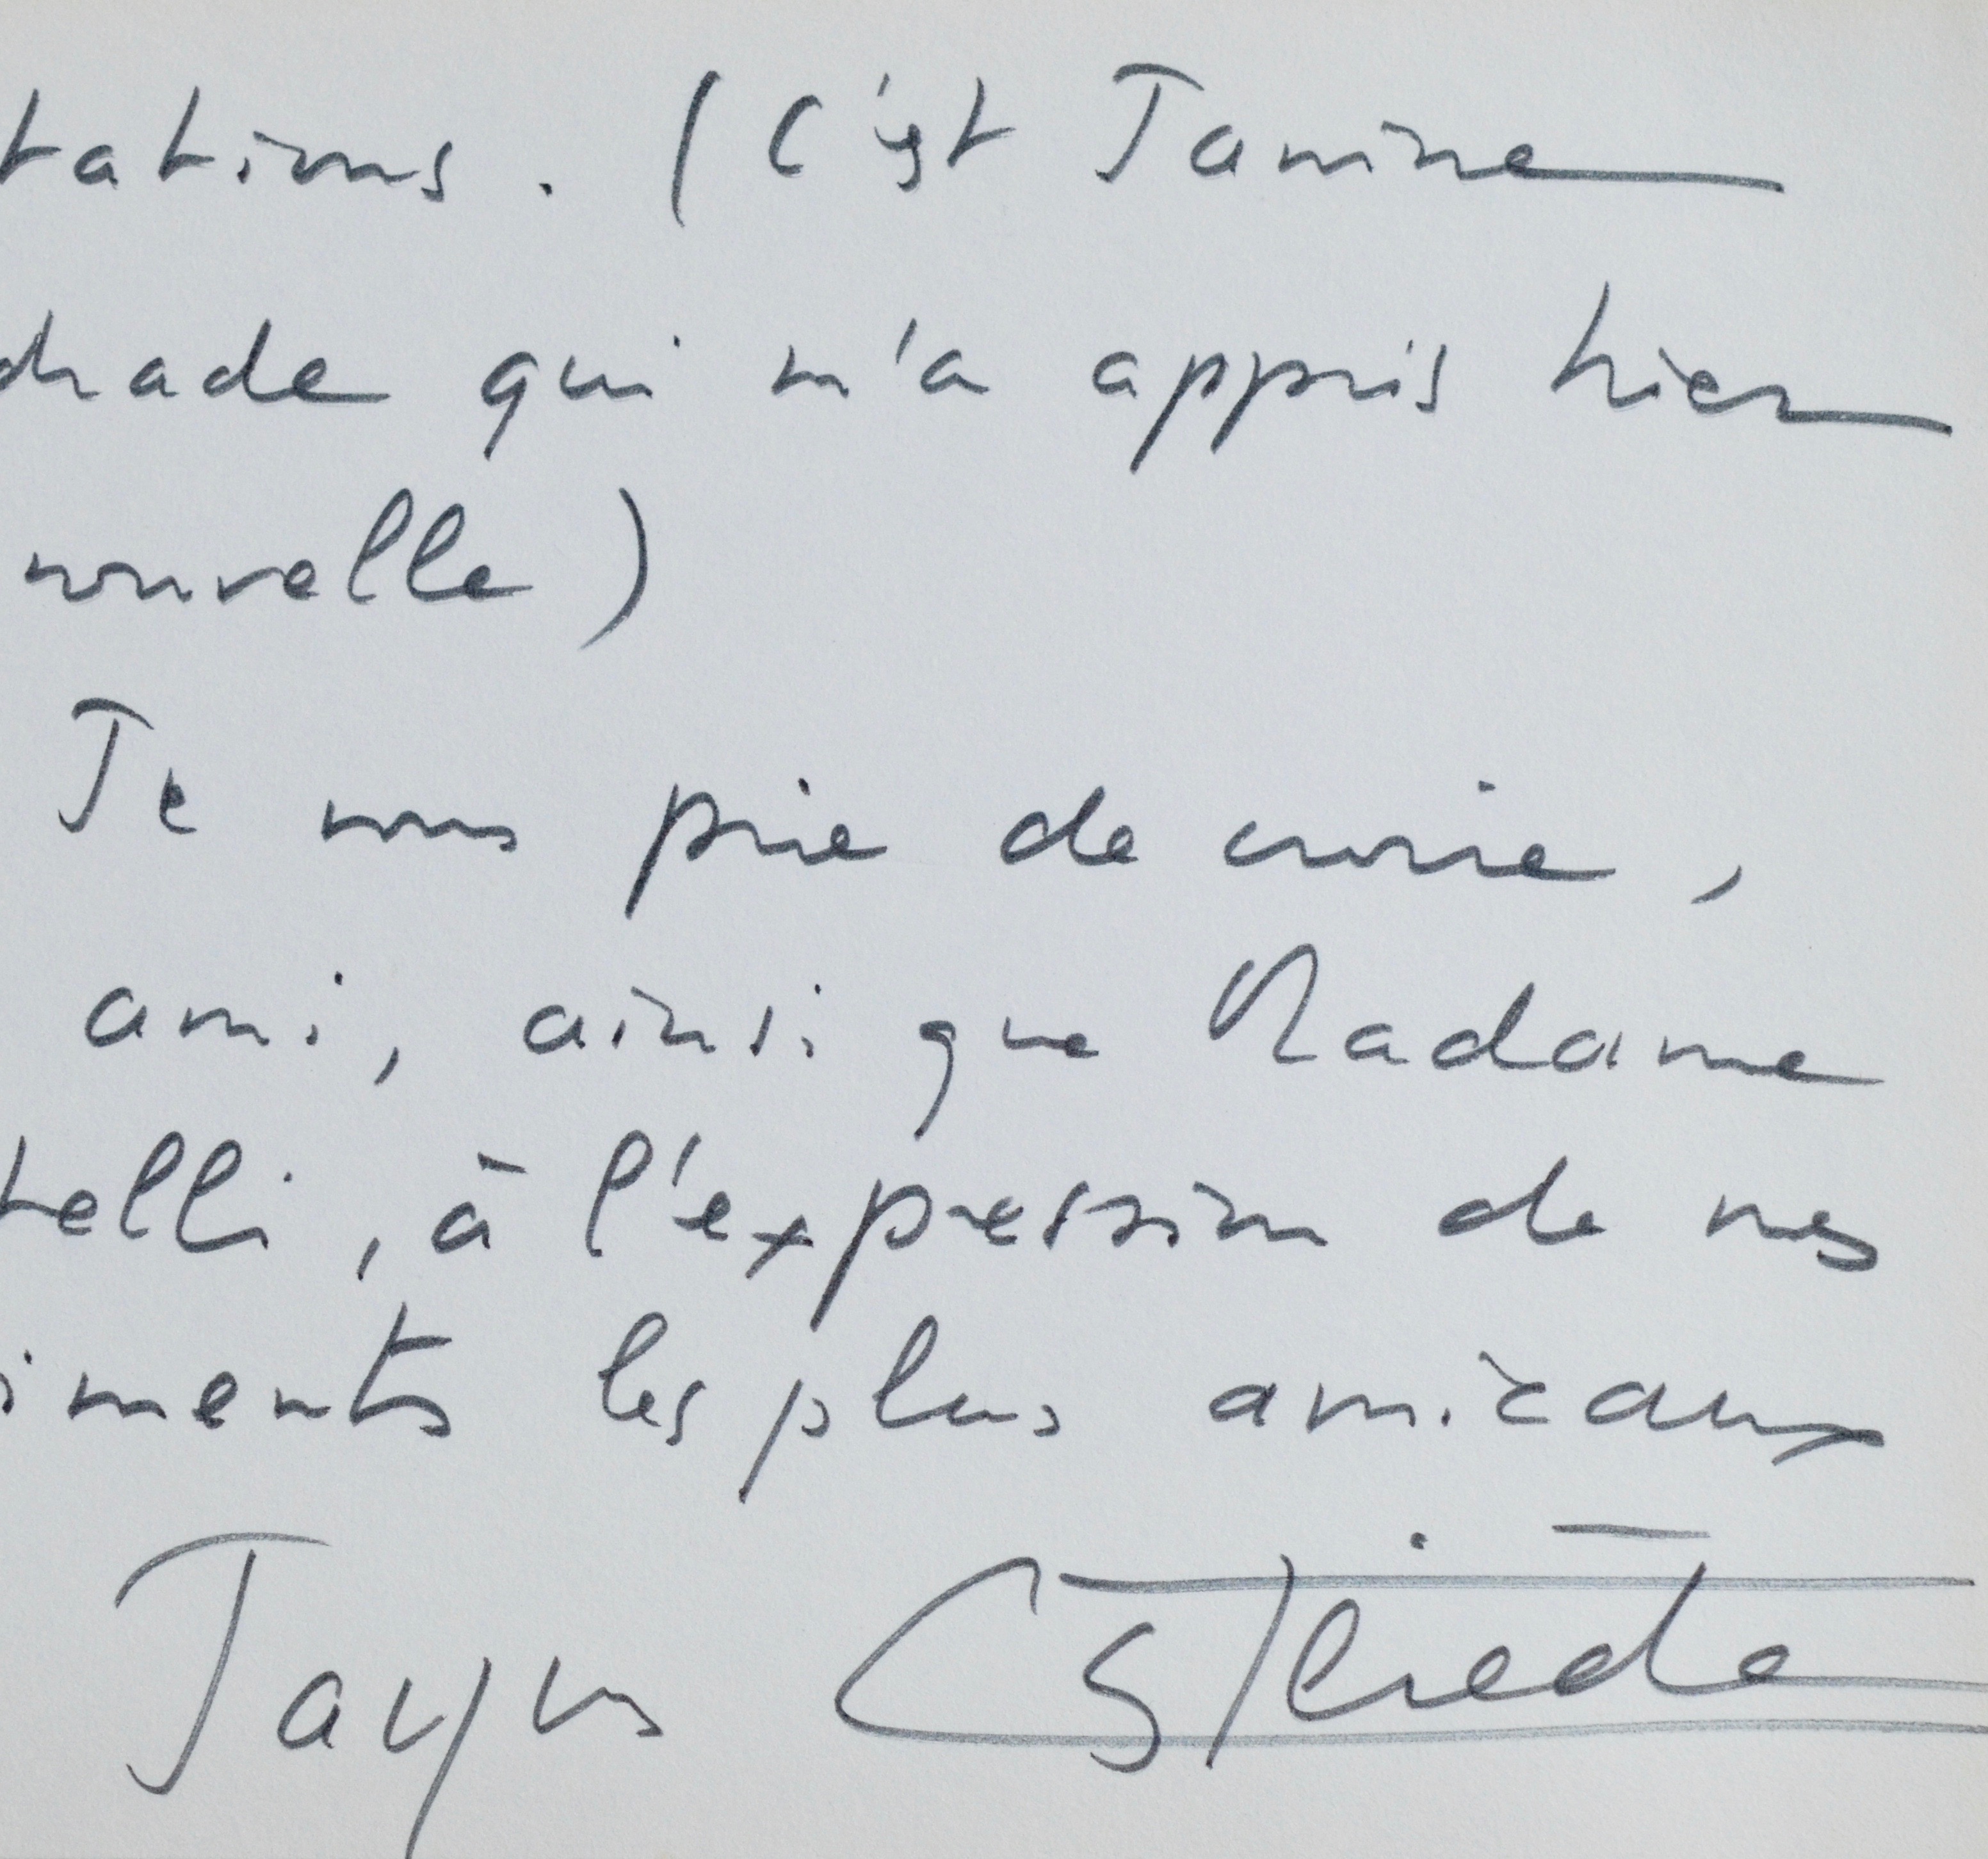 tations. (C'est Janine
drade qui m'a appris hier
nouvelle)
Je vous prie de croire,
ami, ainsi que Madame
telli, à l'expression de nos
iments les plus amicaux
Jacques Castérède